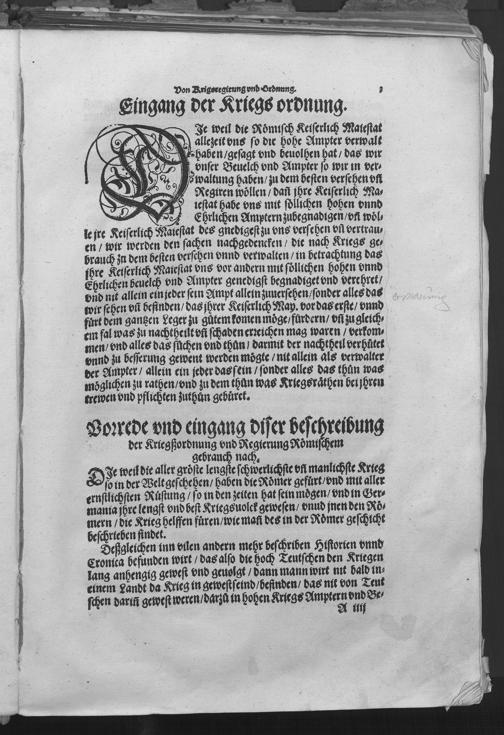 Von Krigsregierung vnd Ordnung. 3
Eingang der Kriegs ordnung.
DJe weil die Römisch Keiserlich Maiestat
allezeit vns so die hohe Ampter verwalt
haben / gesagt vnd beuolhen hat / das wir
vnser Beuelch vnd Ampter so wir in ver-
waltung haben / zu dem besten versehen vñ
Regiren wöllen / dañ jhre Keiserlich Ma-
iestat habe vns mit söllichen hohen vnnd
Ehrlichen Amptern zubegnadigen / vñ wöl-
le jre Keiserlich Maiestat des gnedigest zu vns versehen vñ vertrau-
en / wir werden den sachen nachgedencken / die nach Kriegs ge-
brauch zu dem besten versehen vnnd verwalten / in betrachtung das
jhre Keiserlich Maiestat vns vor andern mit söllichen hohen vnnd
Ehrlichen beuelch vnd Ampter genedigst begnadiget vnd verehret /
vnd nit allein ein jeder sein Ampt allein zuuersehen / sonder alles das
wir sehen vñ befinden / das jhrer Keiserlich May. vor das erste / vnnd
fürt dem gantzen Leger zu gütem komen möge / fürdern / vñ zu gleich-
em fal was zu nachtheilt vñ schaden erreichen mag waren / verkom-
men / vnd alles das süchen vnd thün / darmit der nachtheil verhütet
vnnd zu besserung gewent werden mögte / nit allein als verwalter
der Ampter / allein ein jeder das sein / sonder alles das thün was
möglichen zu rathen / vnd zu dem thün was Kriegsräthen bei jhren
trewen vnd pflichten zuthün gebüret.
Vorrede vnd eingang diser beschreibung
der Kriegßordnung vnd Regierung Römischem
gebrauch nach.
DJe weil die aller gröste lengste schwerlichste vñ manlichste Krieg
so in der Welt geschehen / haben die Römer gefürt / vnd mit aller
ernstlichsten Rüstung / so in den zeiten hat sein mögen / vnd in Ger-
mania jhre lengst vnd best Kriegsuolck gewesen / vnnd jnen den Rö-
mern / die Krieg helffen füren / wie mañ des in der Römer geschicht
beschrieben findet.
Deßgleichen inn vilen andern mehr beschriben Historien vnnd
Cronica befunden wirt / das also die hoch Teutschen den Kriegen
lang anhengig gewest vnd geuolgt / dann mann wirt nit bald in-
einem Landt da Krieg in gewest seind / befinden / das nit von Teut
schen dariñ gewest weren / darzü in hohen Kriegs Amptern vnd Be-
A iiij